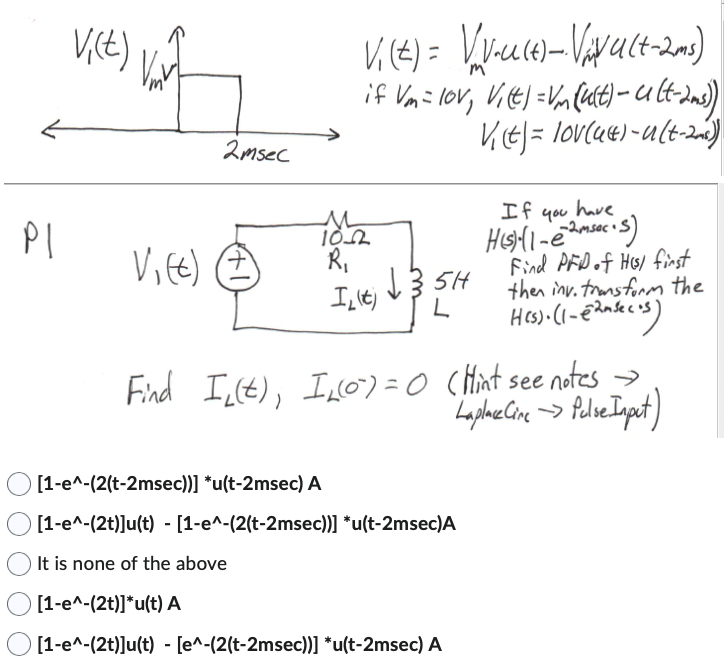 V₁(t)
VmV
2msec
V₁(t) = VmV·u(t) - VmVu(t-2ms)
if Vm = 10V, V₁(t) = Vm(u(t) - u(t-2ms))
V₁(t) = 10V(u(t) - u(t-2ms))
P1
V₁(t)
+
-
10Ω
R₁
I_L(t)
5H
L
If you have
H(s)·(1-e^-2msec·s)
Find PFD of H(s) first
then inv. transform the
H(s)·(1-e^-2msec·s)
Find I_L(t), I_L(0⁻) = 0 (Hint see notes →
Laplace Circ → Pulse Input)
[1-e^-(2(t-2msec))] *u(t-2msec) A
[1-e^-(2t)]u(t) - [1-e^-(2(t-2msec))] *u(t-2msec)A
It is none of the above
[1-e^-(2t)]*u(t) A
[1-e^-(2t)]u(t) - [e^-(2(t-2msec))] *u(t-2msec) A